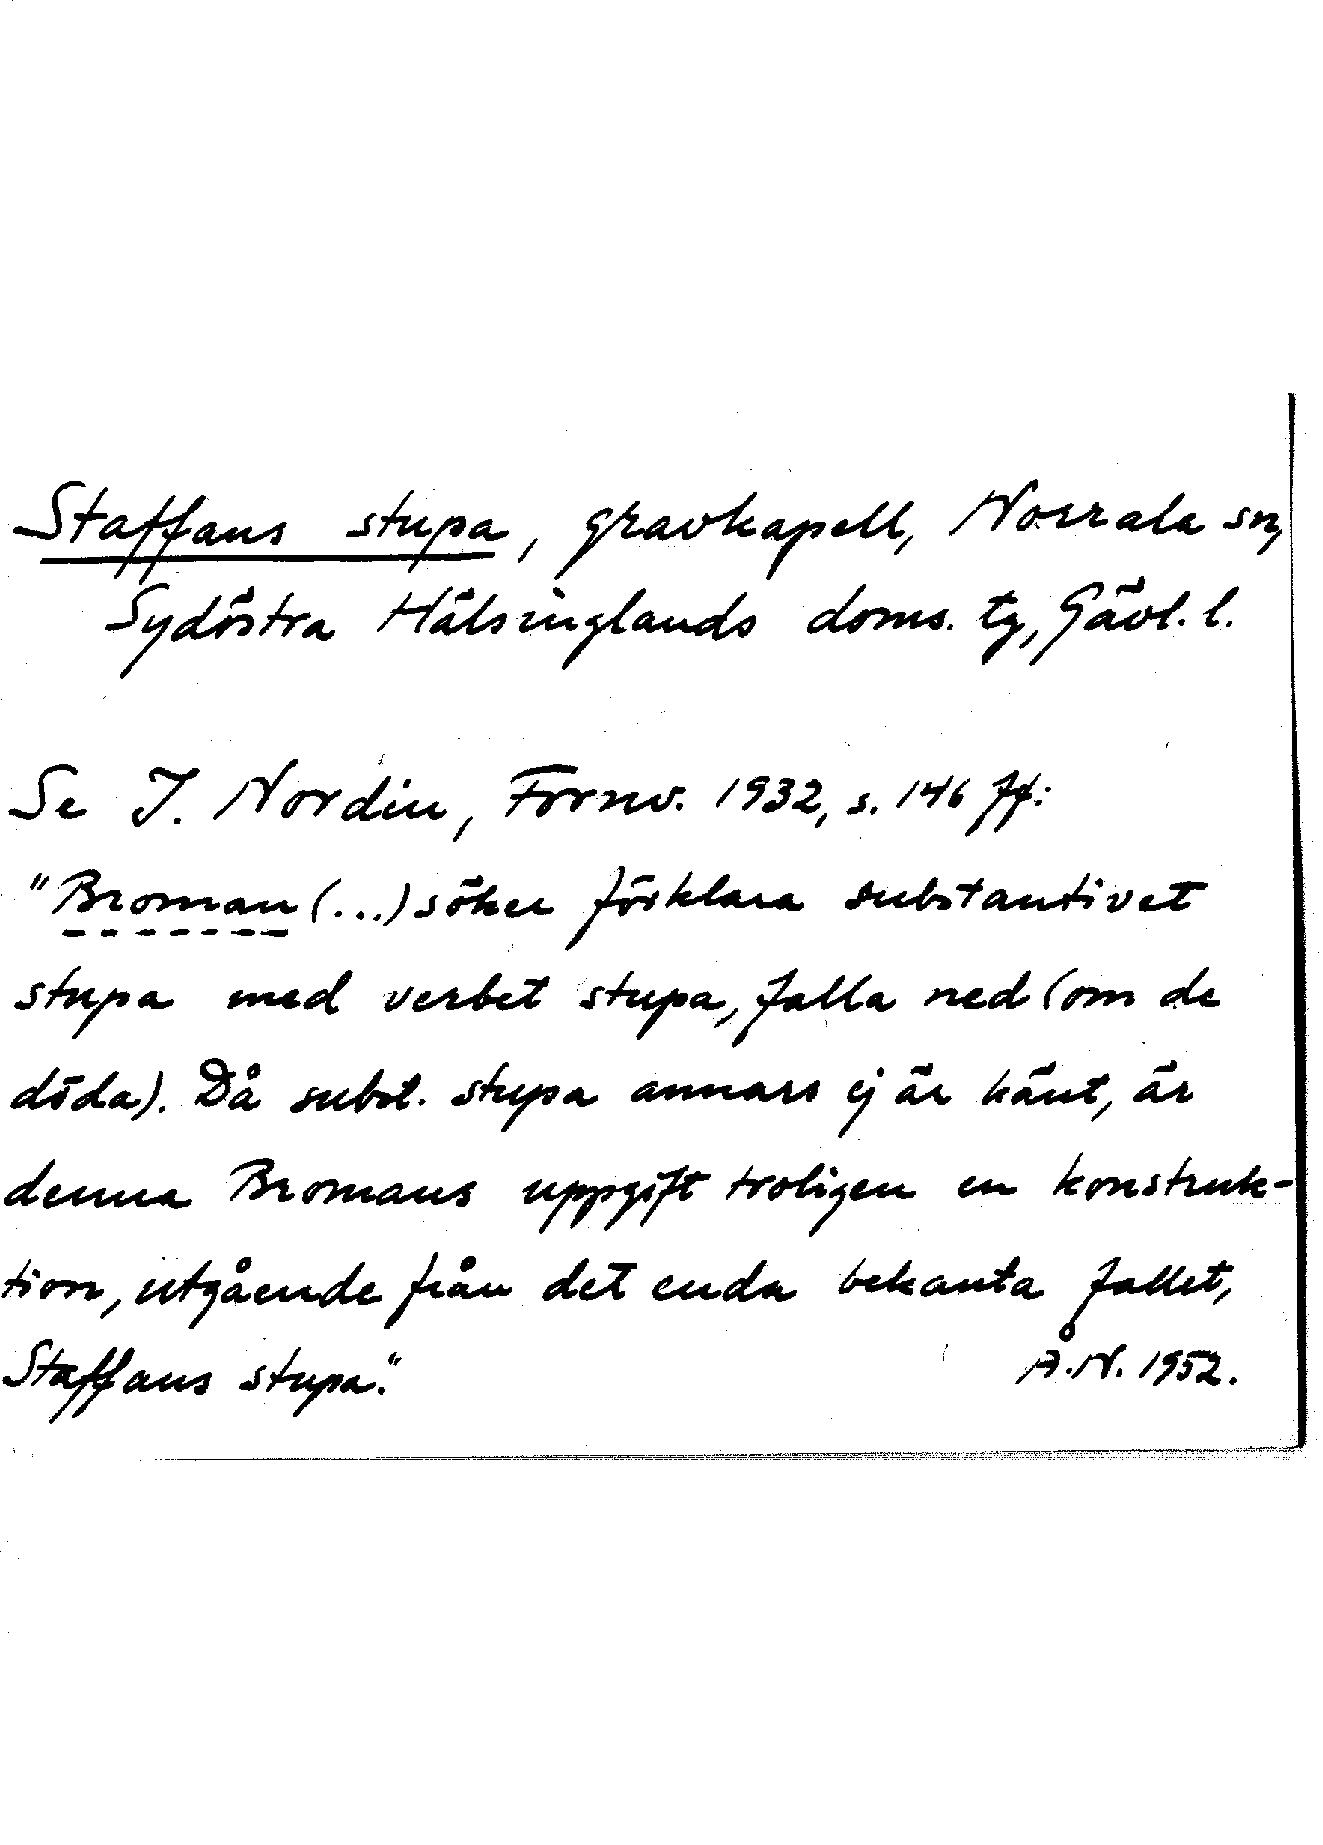 Staffans stupa, gravkapell, Norrala sn,
Sydöstra Hälsinglands doms. tg, Gävl. l.
Se J. Nordin, Fornv. 1932, s. 146 ff:
"Broman (...) söker förklara substantivet
stupa med verbet stupa, falla ned (om de
döda). Då subst. stupa annars ej är känt, är
denna Bromans uppgift troligen en konstruk-
tion, utgående från det enda bekanta fallet,
Staffans stupa."
Å.N. 1952.